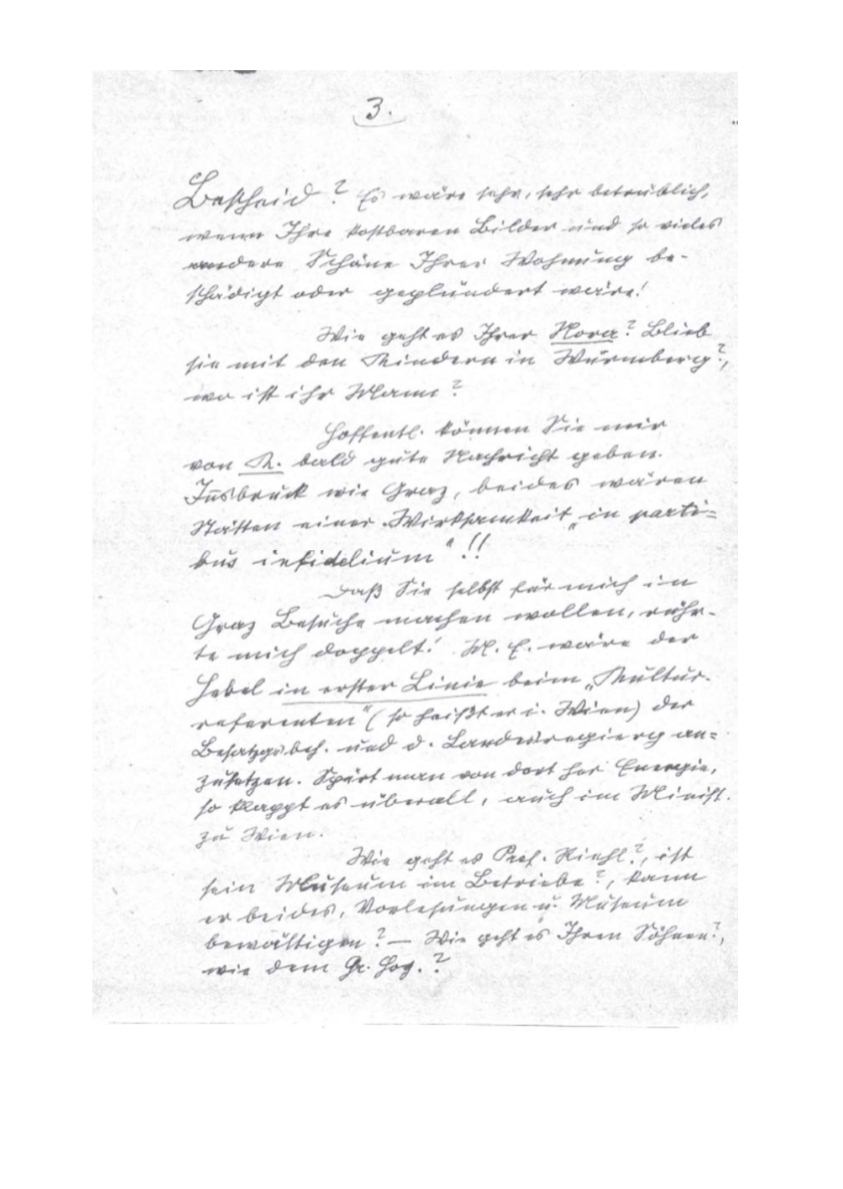 3.
Bescheid? Es wäre sehr, sehr betrüblich,
wenn Ihre kostbaren Bilder und so vieles
andere Schöne Ihrer Wohnung be-
schädigt oder geplündert wäre!
Wie geht es Ihrer Nora? Blieb
sie mit den Kindern in Wurmberg?,
wo ist ihr Mann?
Hoffentl. können Sie mir
von K. bald gute Nachricht geben.
Innsbruck wie Graz, beides wären
Stätten einer Wirksamkeit „in parti=
bus infidelium"!!
Daß Sie selbst für mich in
Graz Besuche machen wollen, rühr-
te mich doppelt! M. E. wäre der
Hebel in erster Linie beim „Kultur-
referenten" (so heißt er i. Wien) der
Besatzgsbeh. und d. Landesregierg an=
zusetzen. Spürt man von dort her Energie,
so klappt es überall, auch im Minist.
zu Wien.
Wie geht es Prof. Riehl?, ist
sein Museum im Betriebe?, kann
er beides, Vorlesungen u. Museum
bewältigen? — Wie geht es Ihren Söhnen?,
wie dem